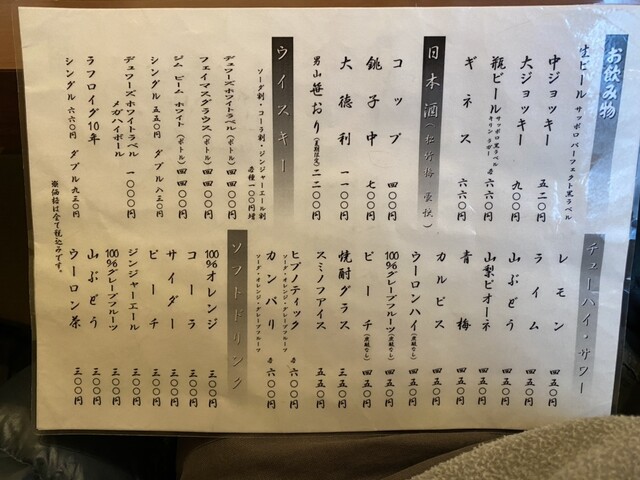 お飲み物
生ビール サッポロ パーフェクト黒ラベル
中ジョッキー 五二〇円
大ジョッキー 九〇〇円
瓶ビール サッポロ黒ラベル キリンラガー 各六六〇円
ギネス 六六〇円
日本酒（松竹梅 豪快）
コップ 四〇〇円
銚子中 七〇〇円
大徳利 一一〇〇円
男山 笹おり（夏期限定） 二二〇〇円
ウイスキー
ソーダ割・コーラ割・ジンジャーエール割
各種一〇〇円増
デュワーズホワイトラベル（ボトル） 四四〇〇円
フェイマスグラウス（ボトル） 四四〇〇円
ジム ビーム ホワイト（ボトル） 四四〇〇円
シングル 五五〇円 ダブル 八三〇円
デュワーズホワイトラベル
メガハイボール 一〇〇〇円
ラフロイグ10年
シングル 六六〇円 ダブル 九三〇円
※価格は全て税込みです。
チューハイ・サワー
レモン 四五〇円
ライム 四五〇円
山ぶどう 四五〇円
山梨ピオーネ 四五〇円
青梅 四五〇円
カルピス 四五〇円
ウーロンハイ（炭酸なし） 四五〇円
100%グレープフルーツ（炭酸なし） 四五〇円
ピーチ（炭酸なし） 四五〇円
焼酎グラス 三五〇円
スミノフアイス 五五〇円
ヒプノティック 各六〇〇円
ソーダ・オレンジ・グレープフルーツ
カンパリ 各六〇〇円
ソーダ・オレンジ・グレープフルーツ
ソフトドリンク
100%オレンジ 三〇〇円
コーラ 三〇〇円
サイダー 三〇〇円
ピーチ 三〇〇円
ジンジャーエール 三〇〇円
100%グレープフルーツ 三〇〇円
山ぶどう 三〇〇円
ウーロン茶 三〇〇円